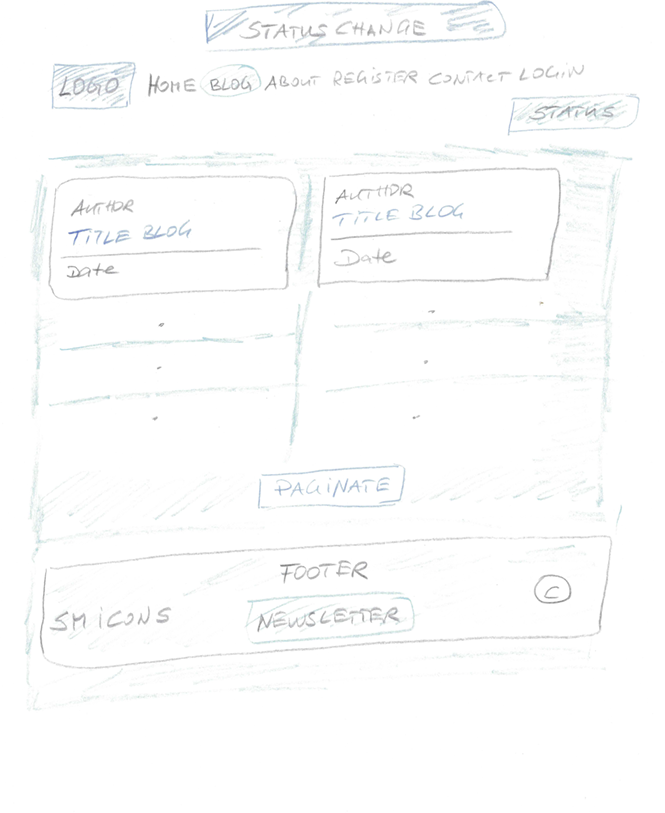 STATUS CHANGE
LOGO HOME BLOG ABOUT REGISTER CONTACT LOGIN
STATUS
AUTHOR
TITLE BLOG
Date
AUTHOR
TITLE BLOG
Date
PAGINATE
FOOTER
C
SM ICONS
NEWSLETTER